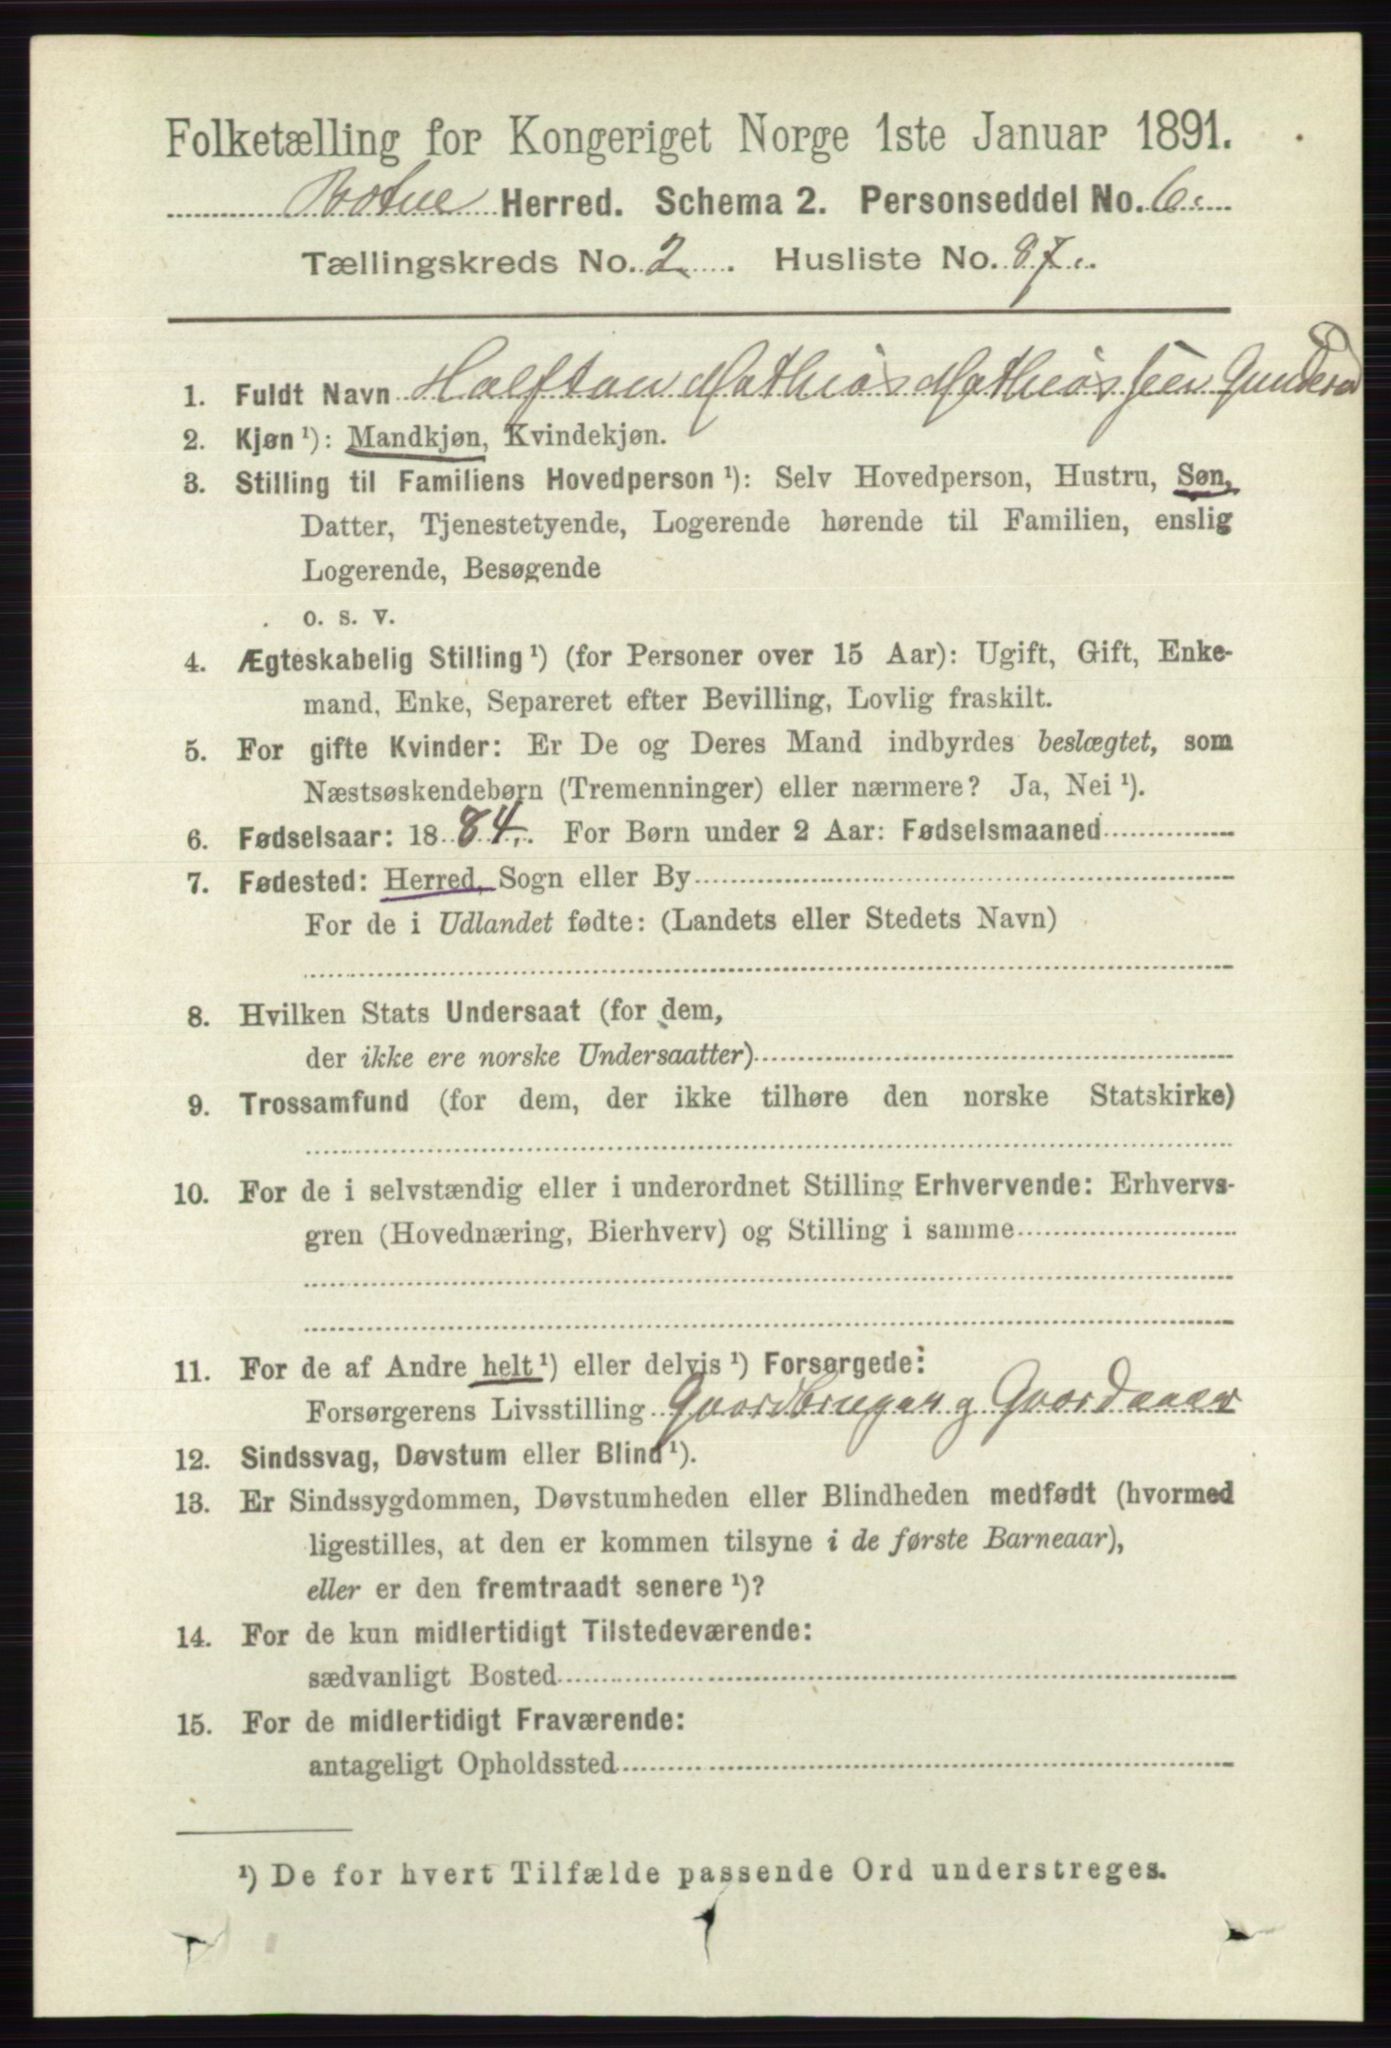 Folketælling for Kongeriget Norge 1ste Januar 1891.
Botne Herred. Schema 2. Personseddel No. 6.
Tællingskreds No. 2. Husliste No. 87.
1. Fuldt Navn Halftan Mathias Mathiassen
2. Kjøn ¹): Mandkjøn, Kvindekjøn.
3. Stilling til Familiens Hovedperson ¹): Selv Hovedperson, Hustru, Søn,
Datter, Tjenestetyende, Logerende hørende til Familien, enslig
Logerende, Besøgende
o. s. v.
4. Ægteskabelig Stilling ¹) (for Personer over 15 Aar): Ugift, Gift, Enke-
mand, Enke, Separeret efter Bevilling, Lovlig fraskilt.
5. For gifte Kvinder: Er De og Deres Mand indbyrdes beslægtet, som
Næstsøskendebørn (Tremenninger) eller nærmere? Ja, Nei ¹).
6. Fødselsaar: 1884. For Børn under 2 Aar: Fødselsmaaned
7. Fødested: Herred, Sogn eller By
For de i Udlandet fødte: (Landets eller Stedets Navn)
8. Hvilken Stats Undersaat (for dem,
der ikke ere norske Undersaatter)
9. Trossamfund (for dem, der ikke tilhøre den norske Statskirke)
10. For de i selvstændig eller i underordnet Stilling Erhvervende: Erhvervs-
gren (Hovednæring, Bierhverv) og Stilling i samme
11. For de af Andre helt ¹) eller delvis ¹) Forsørgede:
Forsørgerens Livsstilling Gaardbruger
12. Sindssvag, Døvstum eller Blind ¹).
13. Er Sindssygdommen, Døvstumheden eller Blindheden medfødt (hvormed
ligestilles, at den er kommen tilsyne i de første Barneaar),
eller er den fremtraadt senere ¹)?
14. For de kun midlertidigt Tilstedeværende:
sædvanligt Bosted
15. For de midlertidigt Fraværende:
antageligt Opholdssted
¹) De for hvert Tilfælde passende Ord understreges.